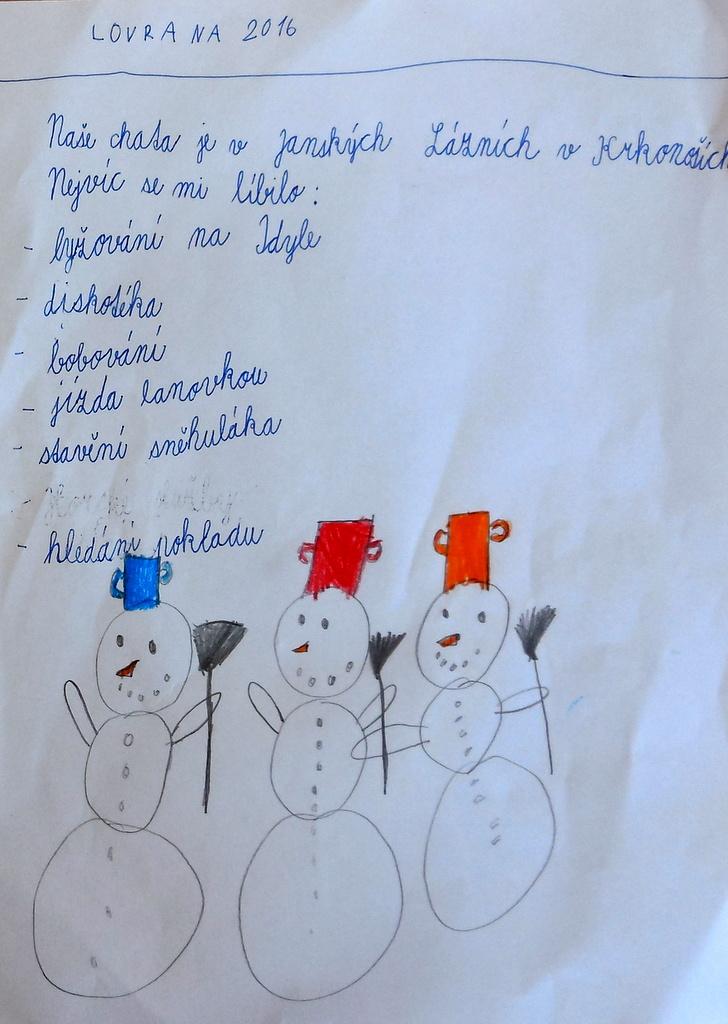 LOVRANA 2016
Naše chata je v Janských Lázních v Krkonoších
Nejvíc se mi líbilo:
- lyžování na Idyle
- diskotéka
- bobování
- jízda lanovkou
- stavění sněhuláka
- hledání pokladu